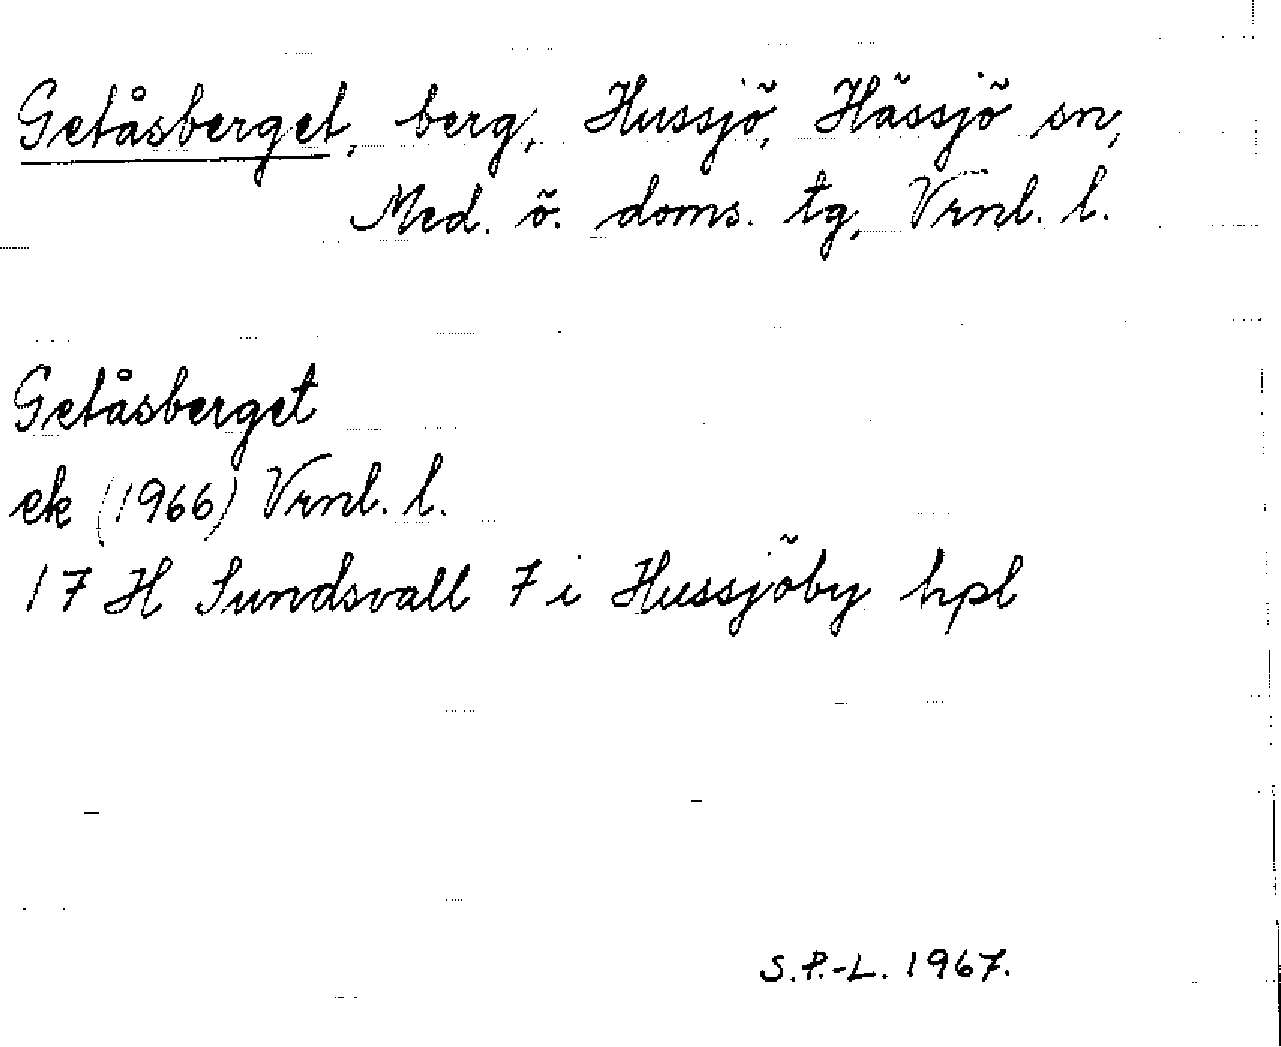 Getåsberget, berg, Hussjö, Hässjö sn,
Med. ö. doms. tg, Vrnl. l.
Getåsberget
ek (1966) Vrnl. l.
17 H Sundsvall 7 i Hussjöby hpl
S.P.-L. 1967.